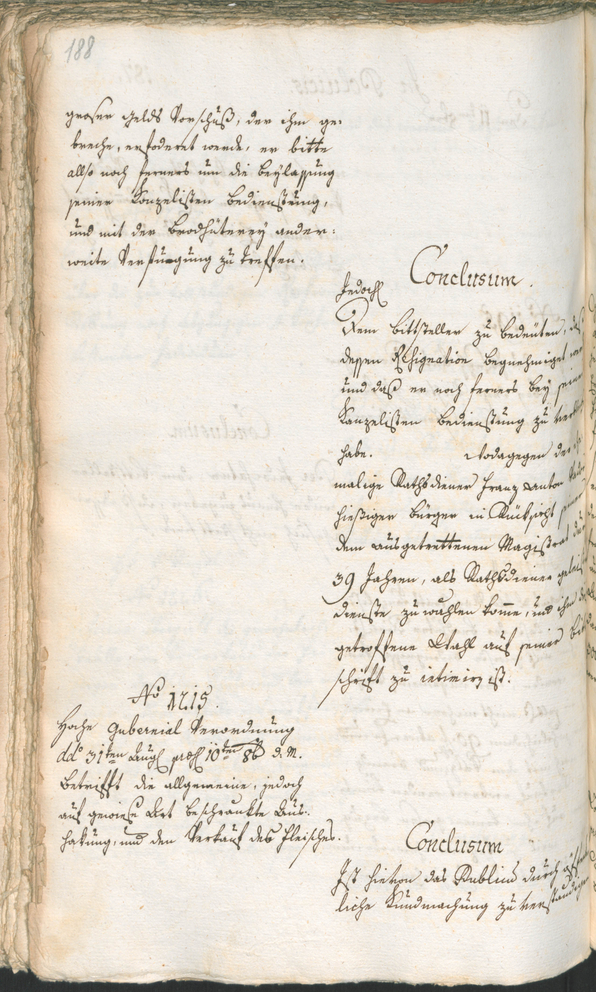 188
großer Gelds Vorschuß, der ihm ge=
breche, erfoderet werde, er bitte
allso noch ferners um die Beylassung
seiner Kanzelisten Bedienstung,
und mit der Brodhüterey ander=
weite Verfügung zu treffen.
Conclusum.
Jedoch
Dem Bittsteller zu bedeuten, daß
dessen Resignation begnehmiget
und daß er noch ferners bey seiner
Kanzelisten Bedienstung zu
habe. Wodagegen der
malige Rathsdiener Franz Anton
hießiger Bürger in Rücksicht seiner
dem ausgetrettenen Magistrat
39 Jahren, als Rathsdiener
dienste zu wählen komme, und ihm
getroffene Wahl auf seiner
schrift zu intimiren ist.
No 1215.
Hohe Gubernial Verordnung
ddo 31ten Augl. 10ten 8b d. M.
betrifft die allgemeine, jedoch
auf gewiese Art beschränkte Aus=
hakung, und den Verkauf des Fleisches.
Conclusum
Ist hievon das Publicum durch
liche Kundmachung zu verständigen